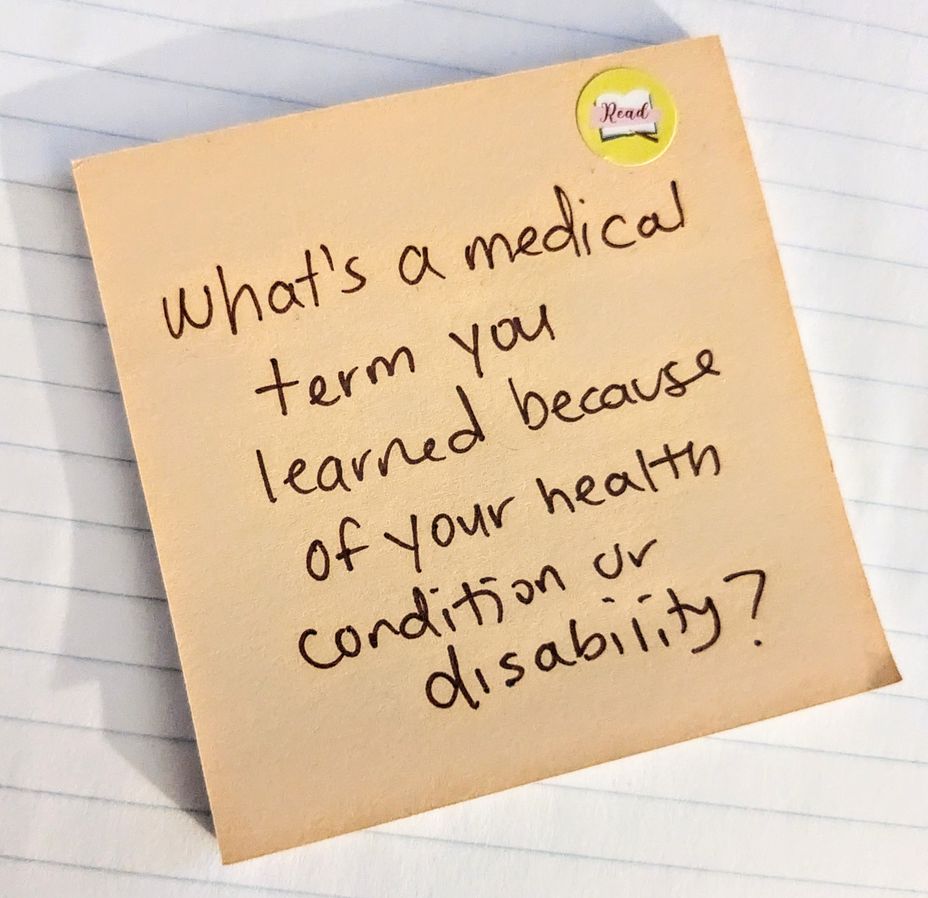 Read
What's a medical
term you
learned because
of your health
condition or
disability?